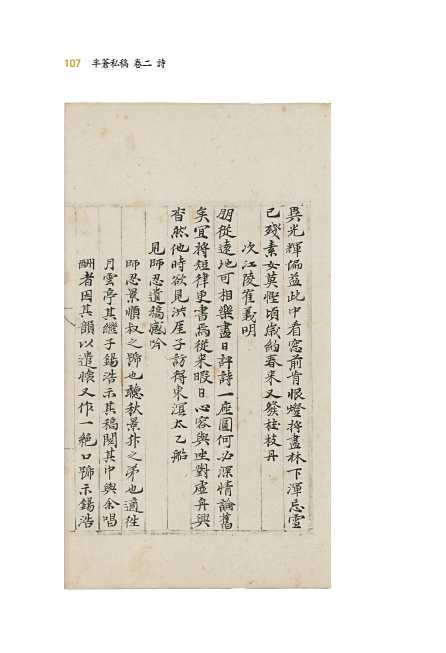 107 半蒼私稿 卷二 詩
異光輝偏益此中看窓前肯恨燈將盡林下渾忘雪
已殘素女莫慳頃歲約春来又發桂枝丹
次江陵崔義明
朋從遠地可相樂盡日評詩一座圓何必深情論舊
矣宜將短律更書焉從来暇日心容與坐對虛舟興
杳然他時欲見洪崖子訪得東溟太乙船
見師忍遺稿感吟
師忍景順叔之號也聽秋景朴之弟也適往
月雲亭其繼子錫浩示其稿閱其中與余唱
酬者因其韻以遣懷又作一絶口號示錫浩